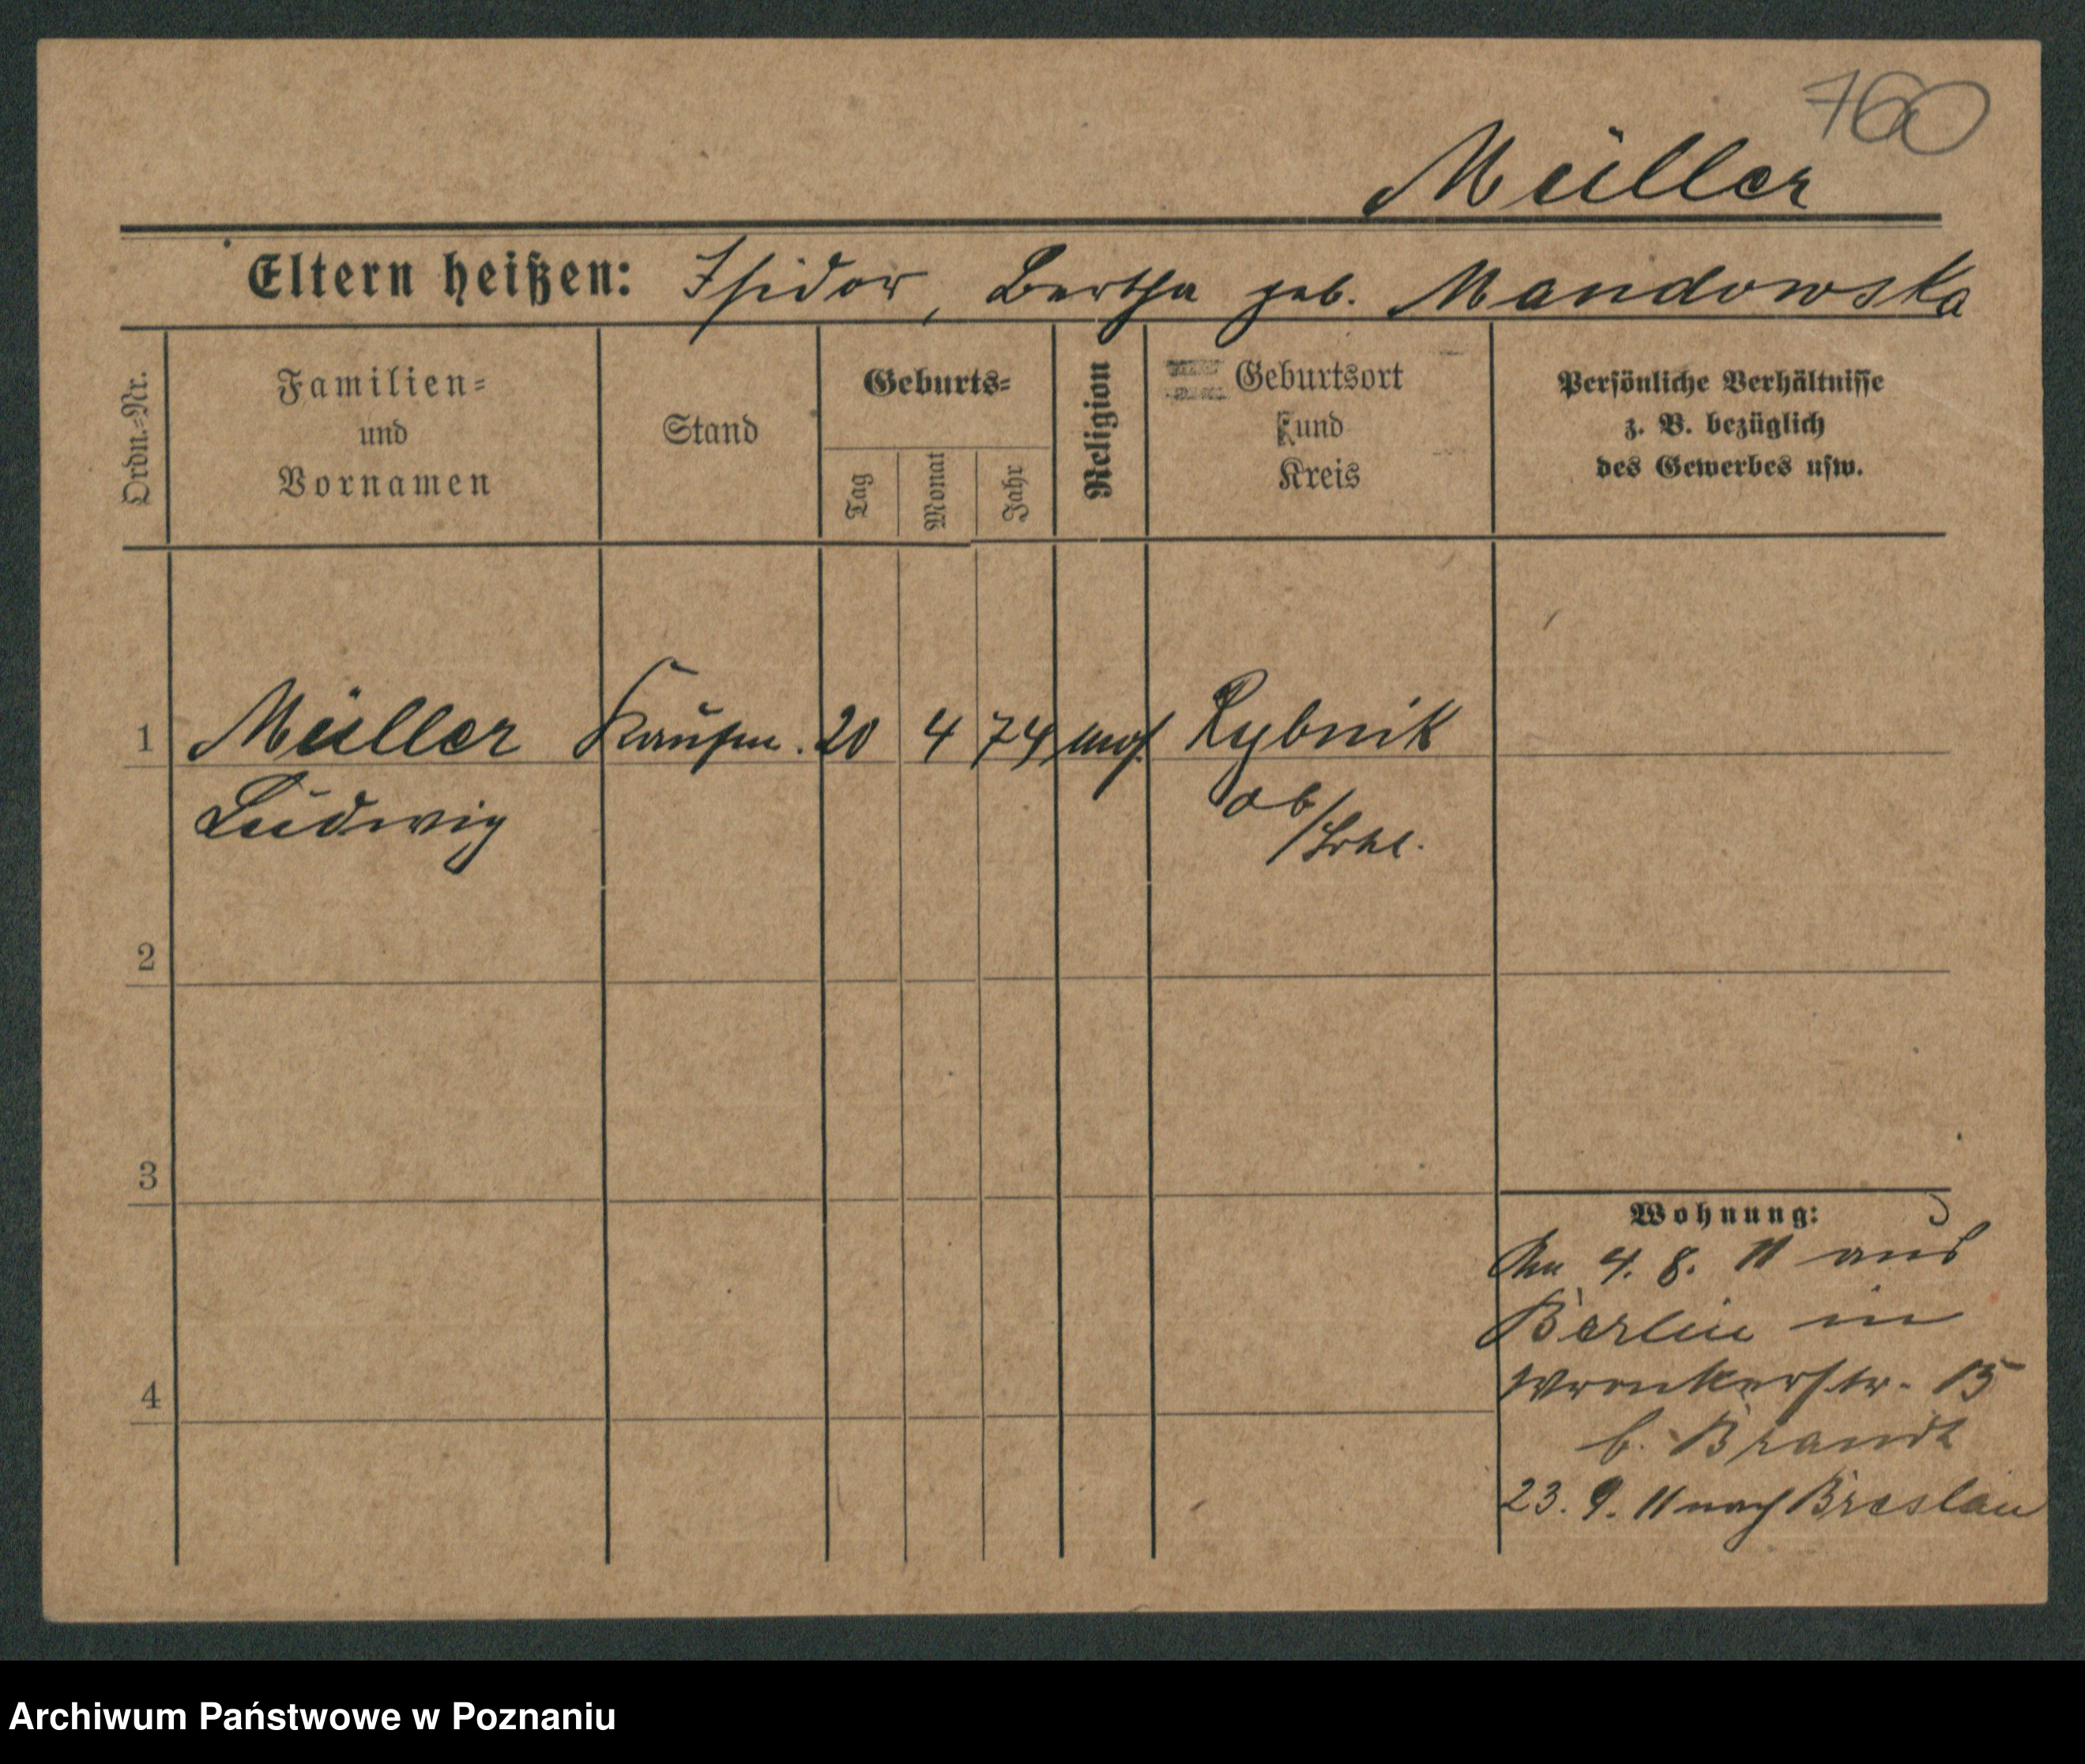 760
Müller
Eltern heißen: Isidor, Bertha geb. Mandowska
Ordn.=Nr.
Familien=
und
Vornamen
Stand
Geburts=
Tag
Monat
Jahr
Religion
Geburtsort
und
Kreis
Persönliche Verhältnisse
z. B. bezüglich
des Gewerbes usw.
1 Müller Kaufm. 20 4 74 mos. Rybnik
Ludwig
Ob/Schl.
2
3
4
Wohnung:
4. 8. 11 aus
Berlin in
Wronkerstr. 15
b. Brandt
23. 9. 11 nach Breslau
Archiwum Państwowe w Poznaniu